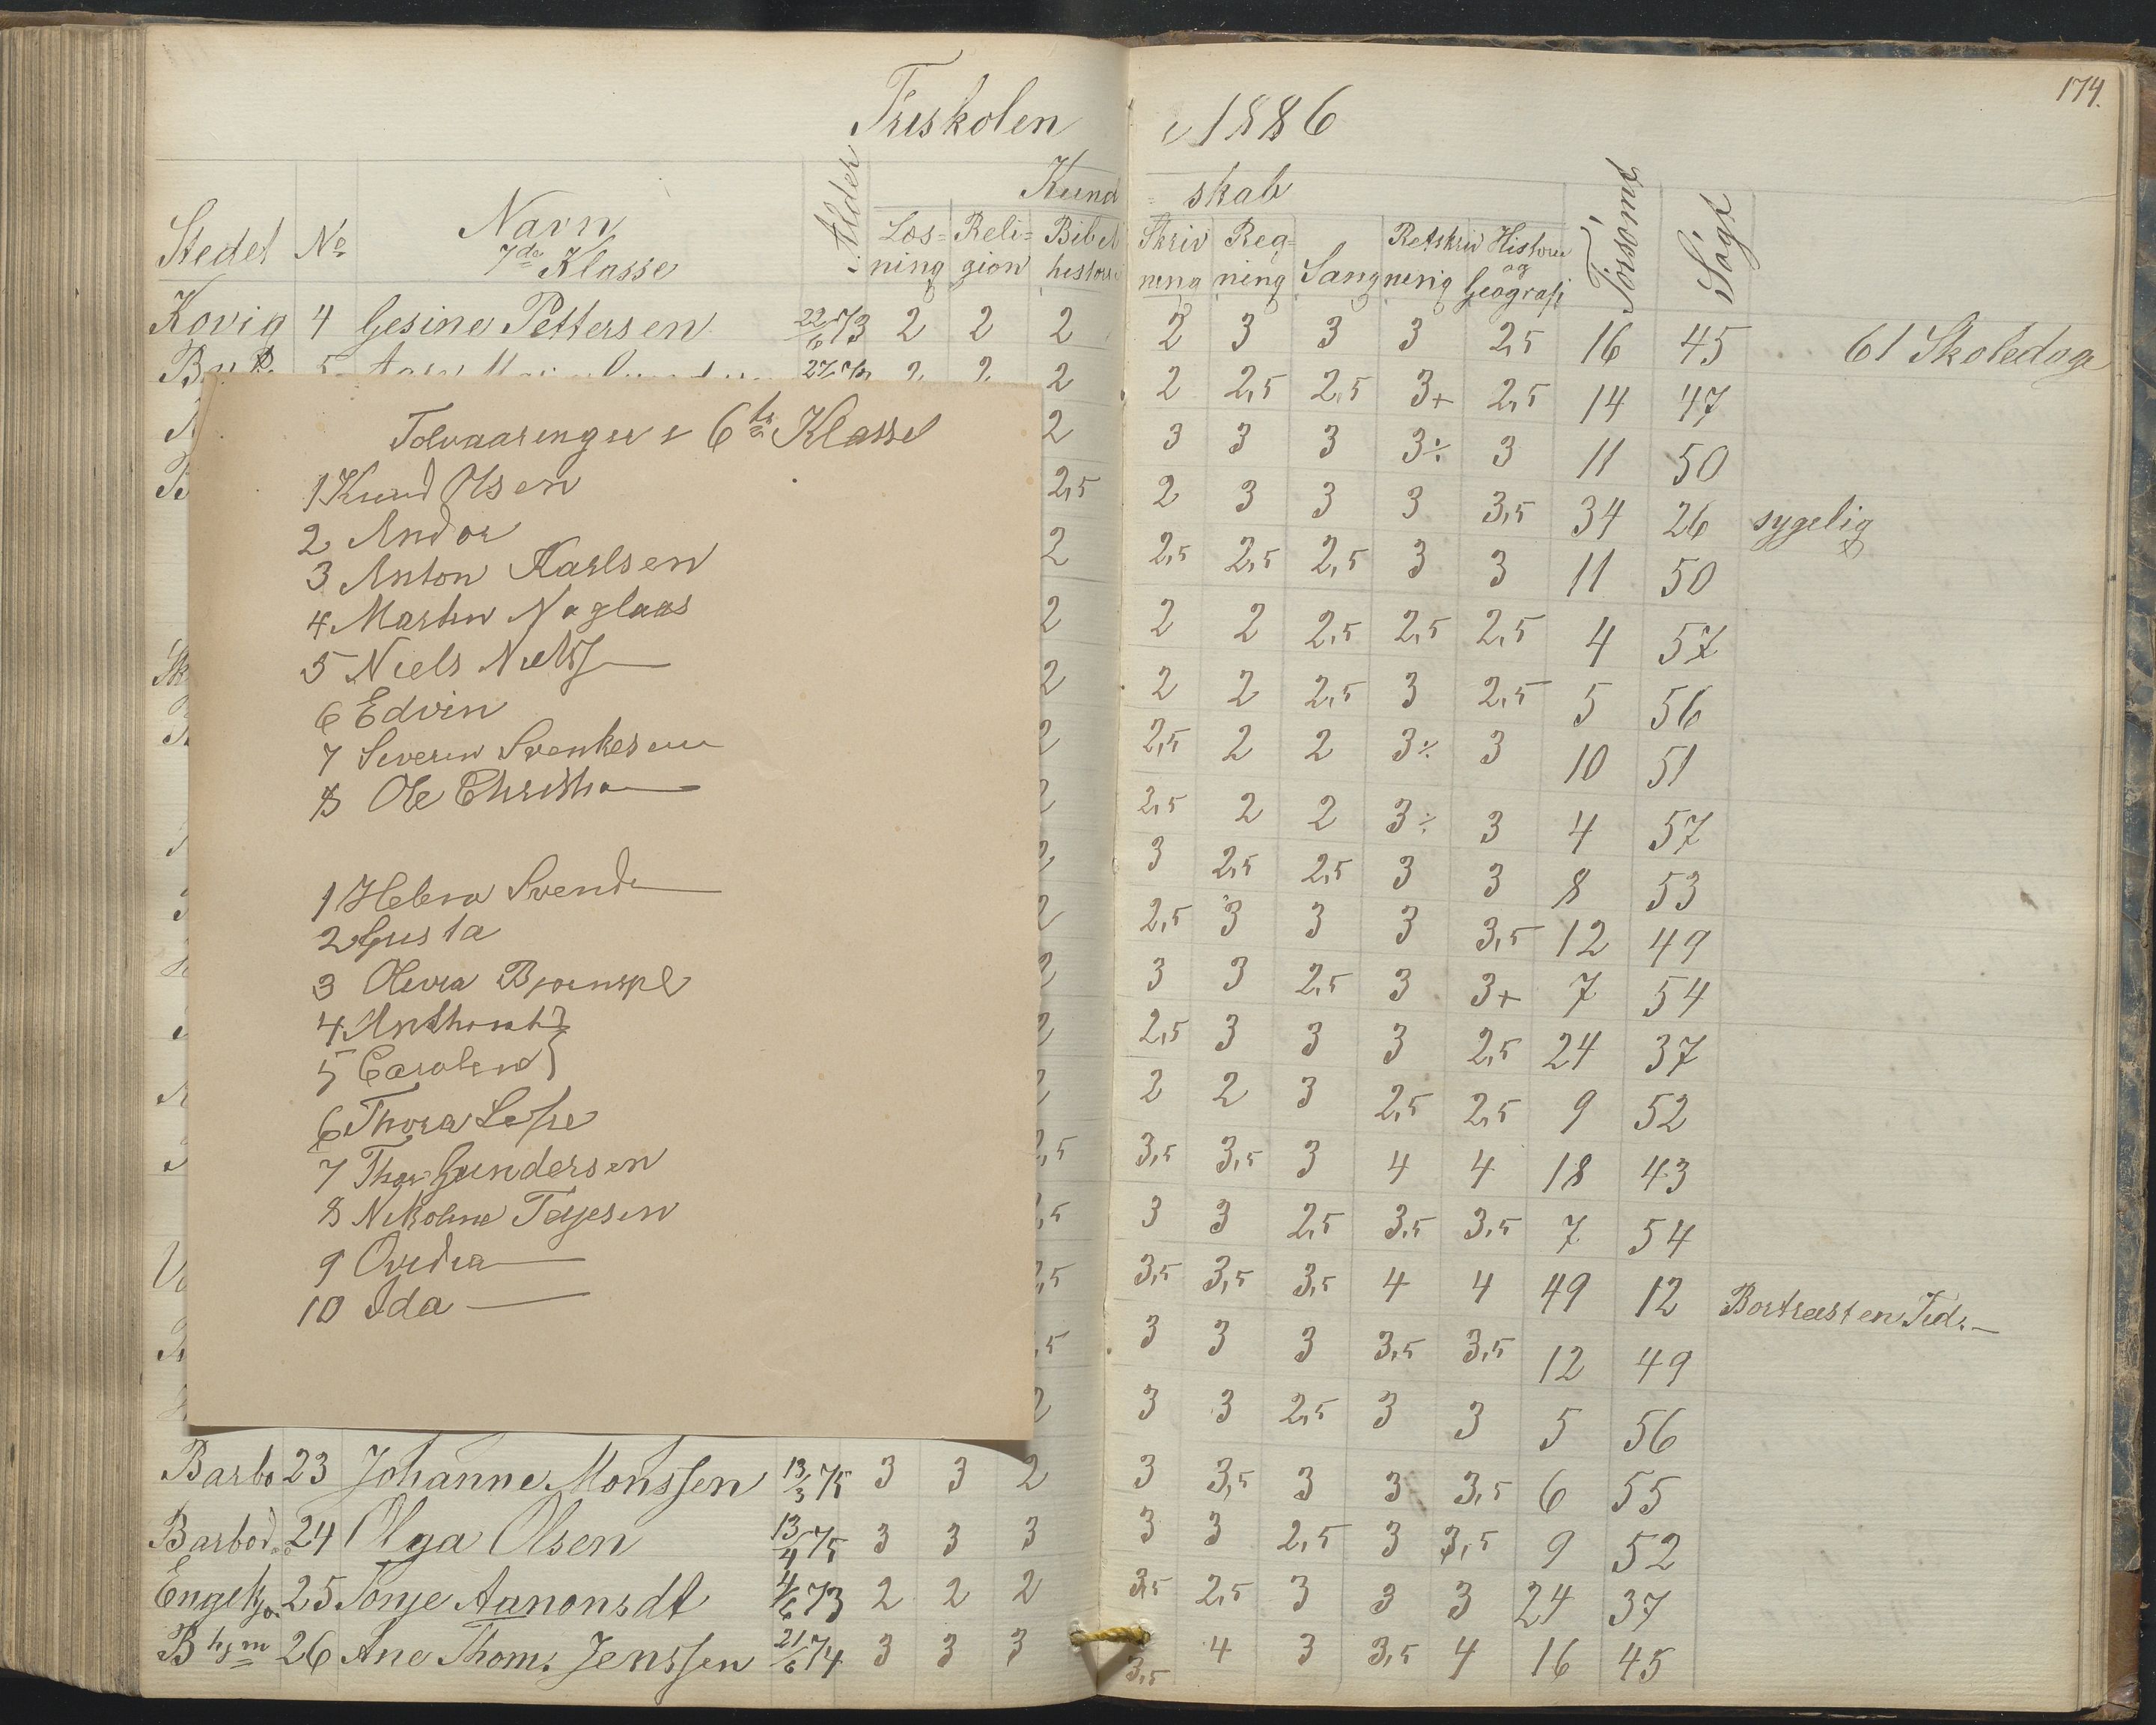 174.
Friskolen i 1886
Kund = skab
Stedet No Navn Alder Læs= Reli= Bibel Skriv Reg= Retskriv Historie Forsømt Søgt
7de Klasse ning gion historie ning ning Sang ning og Geografi
Kovig 4 Gesine Pettersen 22/6 73 2 2 2 2 3 3 3 2,5 16 45 61 Skoledage
5 2 2 2 2 2,5 2,5 3+ 2,5 14 47
2 3 3 3 3÷ 3 11 50
2,5 2 3 3 3 3,5 34 26 sygelig
2 2,5 2,5 2,5 3 3 11 50
2 2 2 2,5 2,5 2,5 4 57
2 2 2 2,5 3 2,5 5 56
2 2,5 2 2 3÷ 3 10 51
2 2,5 2 2 3÷ 3 4 57
2 3 2,5 2,5 3 3 8 53
2 2,5 3 3 3 3,5 12 49
2 3 3 2,5 3 3+ 7 54
2 2,5 3 3 3 2,5 24 37
2 2 2 3 2,5 2,5 9 52
2,5 3,5 3,5 3 4 4 18 43
2,5 3 3 2,5 3,5 3,5 7 54
2,5 3,5 3,5 3,5 4 4 49 12 Bortreist en Tid.
,5 3 3 3 3,5 3,5 12 49
2 3 3 2,5 3 3 5 56
Barbo 23 Johanne Monssen 13/3 75 3 3 2 3 3,5 3 3 3,5 6 55
Barbo do 24 Olga Olsen 13/4 75 3 3 3 3 3 2,5 3 3,5 9 52
25 Tonje Aanonsdt 4/6 73 2 2 2 3,5 2,5 3 3 3 24 37
26 Ane Thom. Jenssen 21/6 74 3 3 3 3,5 4 3 3,5 4 16 45
Tolvaaringer i 6te Klasse
1 Knud Olsen
2 Andor
3 Anton Karlsen
4 Martin Naglaas
5 Niels Niels
6 Edvin
7 Severin Svenkesen
8 Ole Christia
1 Helena Svend
2 Gusta
3 Olevia
4
5 Caroline }
6 Thora
7 Thor Gundersen
8 Nikoline Terjesen
9 Ovidia
10 Ida